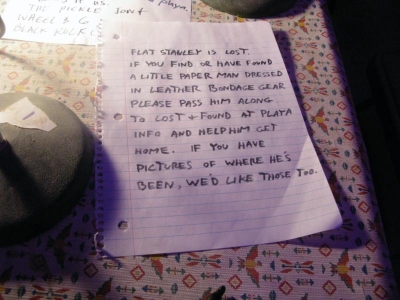 THE PICKLE
WHEEL & G
BLACK ROCK
playa.
FLAT STANLEY IS LOST.
IF YOU FIND OR HAVE FOUND
A LITTLE PAPER MAN DRESSED
IN LEATHER BONDAGE GEAR
PLEASE PASS HIM ALONG
TO LOST + FOUND AT PLAYA
INFO AND HELP HIM GET
HOME. IF YOU HAVE
PICTURES OF WHERE HE'S
BEEN, WE'D LIKE THOSE TOO.